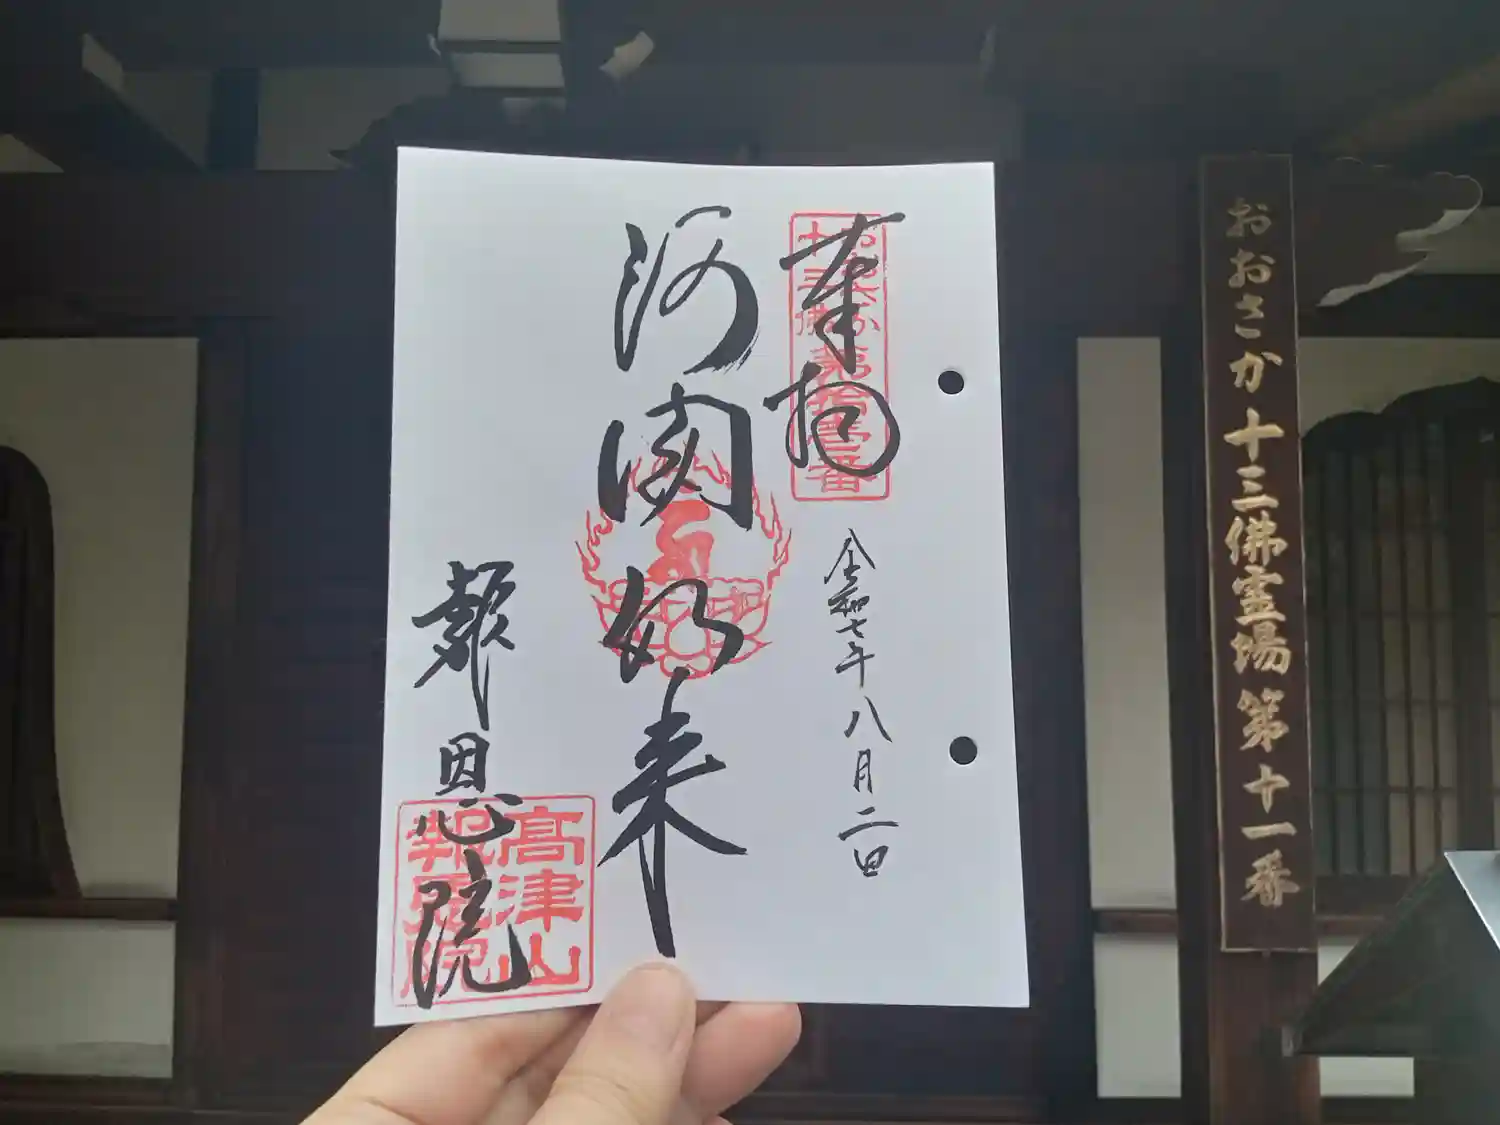 おおさか十三佛霊場第十一番
奉拝
おおさか
十三佛
第拾壱番
令和七年八月二日
阿閦如来
報恩院
高津山
報恩院